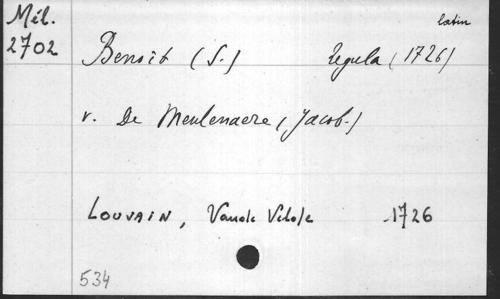 Mél. latin
2702 Benoît (S.) Regula (1726)
v. De Meulenaere (Jacob.)
LOUVAIN, 1726
534